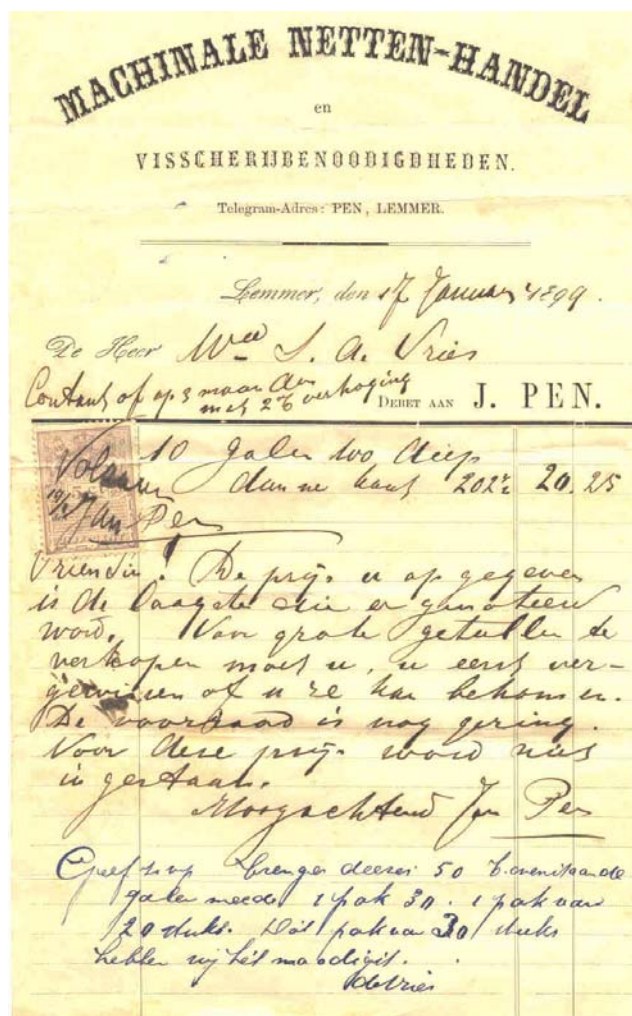 MACHINALE NETTEN-HANDEL
en
VISSCHERIJBENOODIGDHEDEN.
Telegram-Adres: PEN, LEMMER.
Lemmer, den 17 Januari 1899.
De Heer Wed S. A. Vries
Contant of op 3 maanden
met 2% verhoging
DEBET AAN J. PEN.
10 galen 100 diep
dunne kant 202½ 20.25
Voldaan
19/1
Jan Pen
Vriendin! De prijs u op gegeven
is de laagste die er genoteerd
word. Voor grote getallen te
verkopen moet u, u eerst ver-
gewissen of u ze kan bekomen.
De voorraad is nog gering.
Voor deze prijs word niet
in gestaan.
Hoogachtend Jan Pen
Geef s.v.p. brenger deezes 50 bovenstaande
galen meede 1 pak 30. 1 pak van
20 stuks. Dat pak van 30 stuks
hebben wij het
de Vries